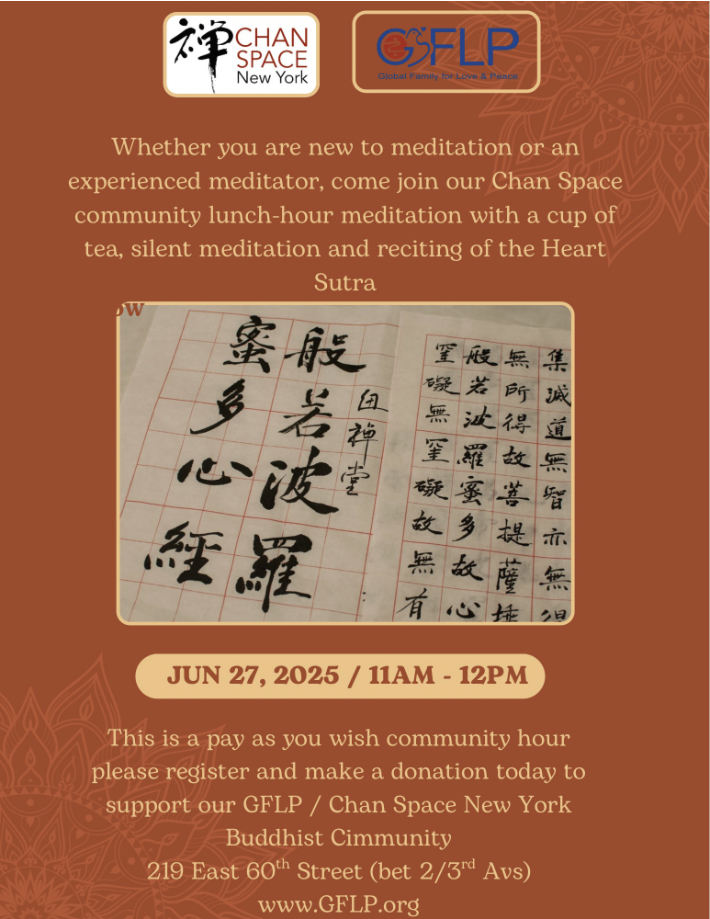 禅 CHAN
SPACE
New York
GFLP
Global Family for Love & Peace
Whether you are new to meditation or an
experienced meditator, come join our Chan Space
community lunch-hour meditation with a cup of
tea, silent meditation and reciting of the Heart
Sutra
ow
禅堂
般若波羅
蜜多心經
集滅道無智亦無得
無所得故菩提薩埵
般若波羅蜜多故心
罣礙無罣礙故無有
JUN 27, 2025 / 11AM - 12PM
This is a pay as you wish community hour
please register and make a donation today to
support our GFLP / Chan Space New York
Buddhist Cimmunity
219 East 60th Street (bet 2/3rd Avs)
www.GFLP.org